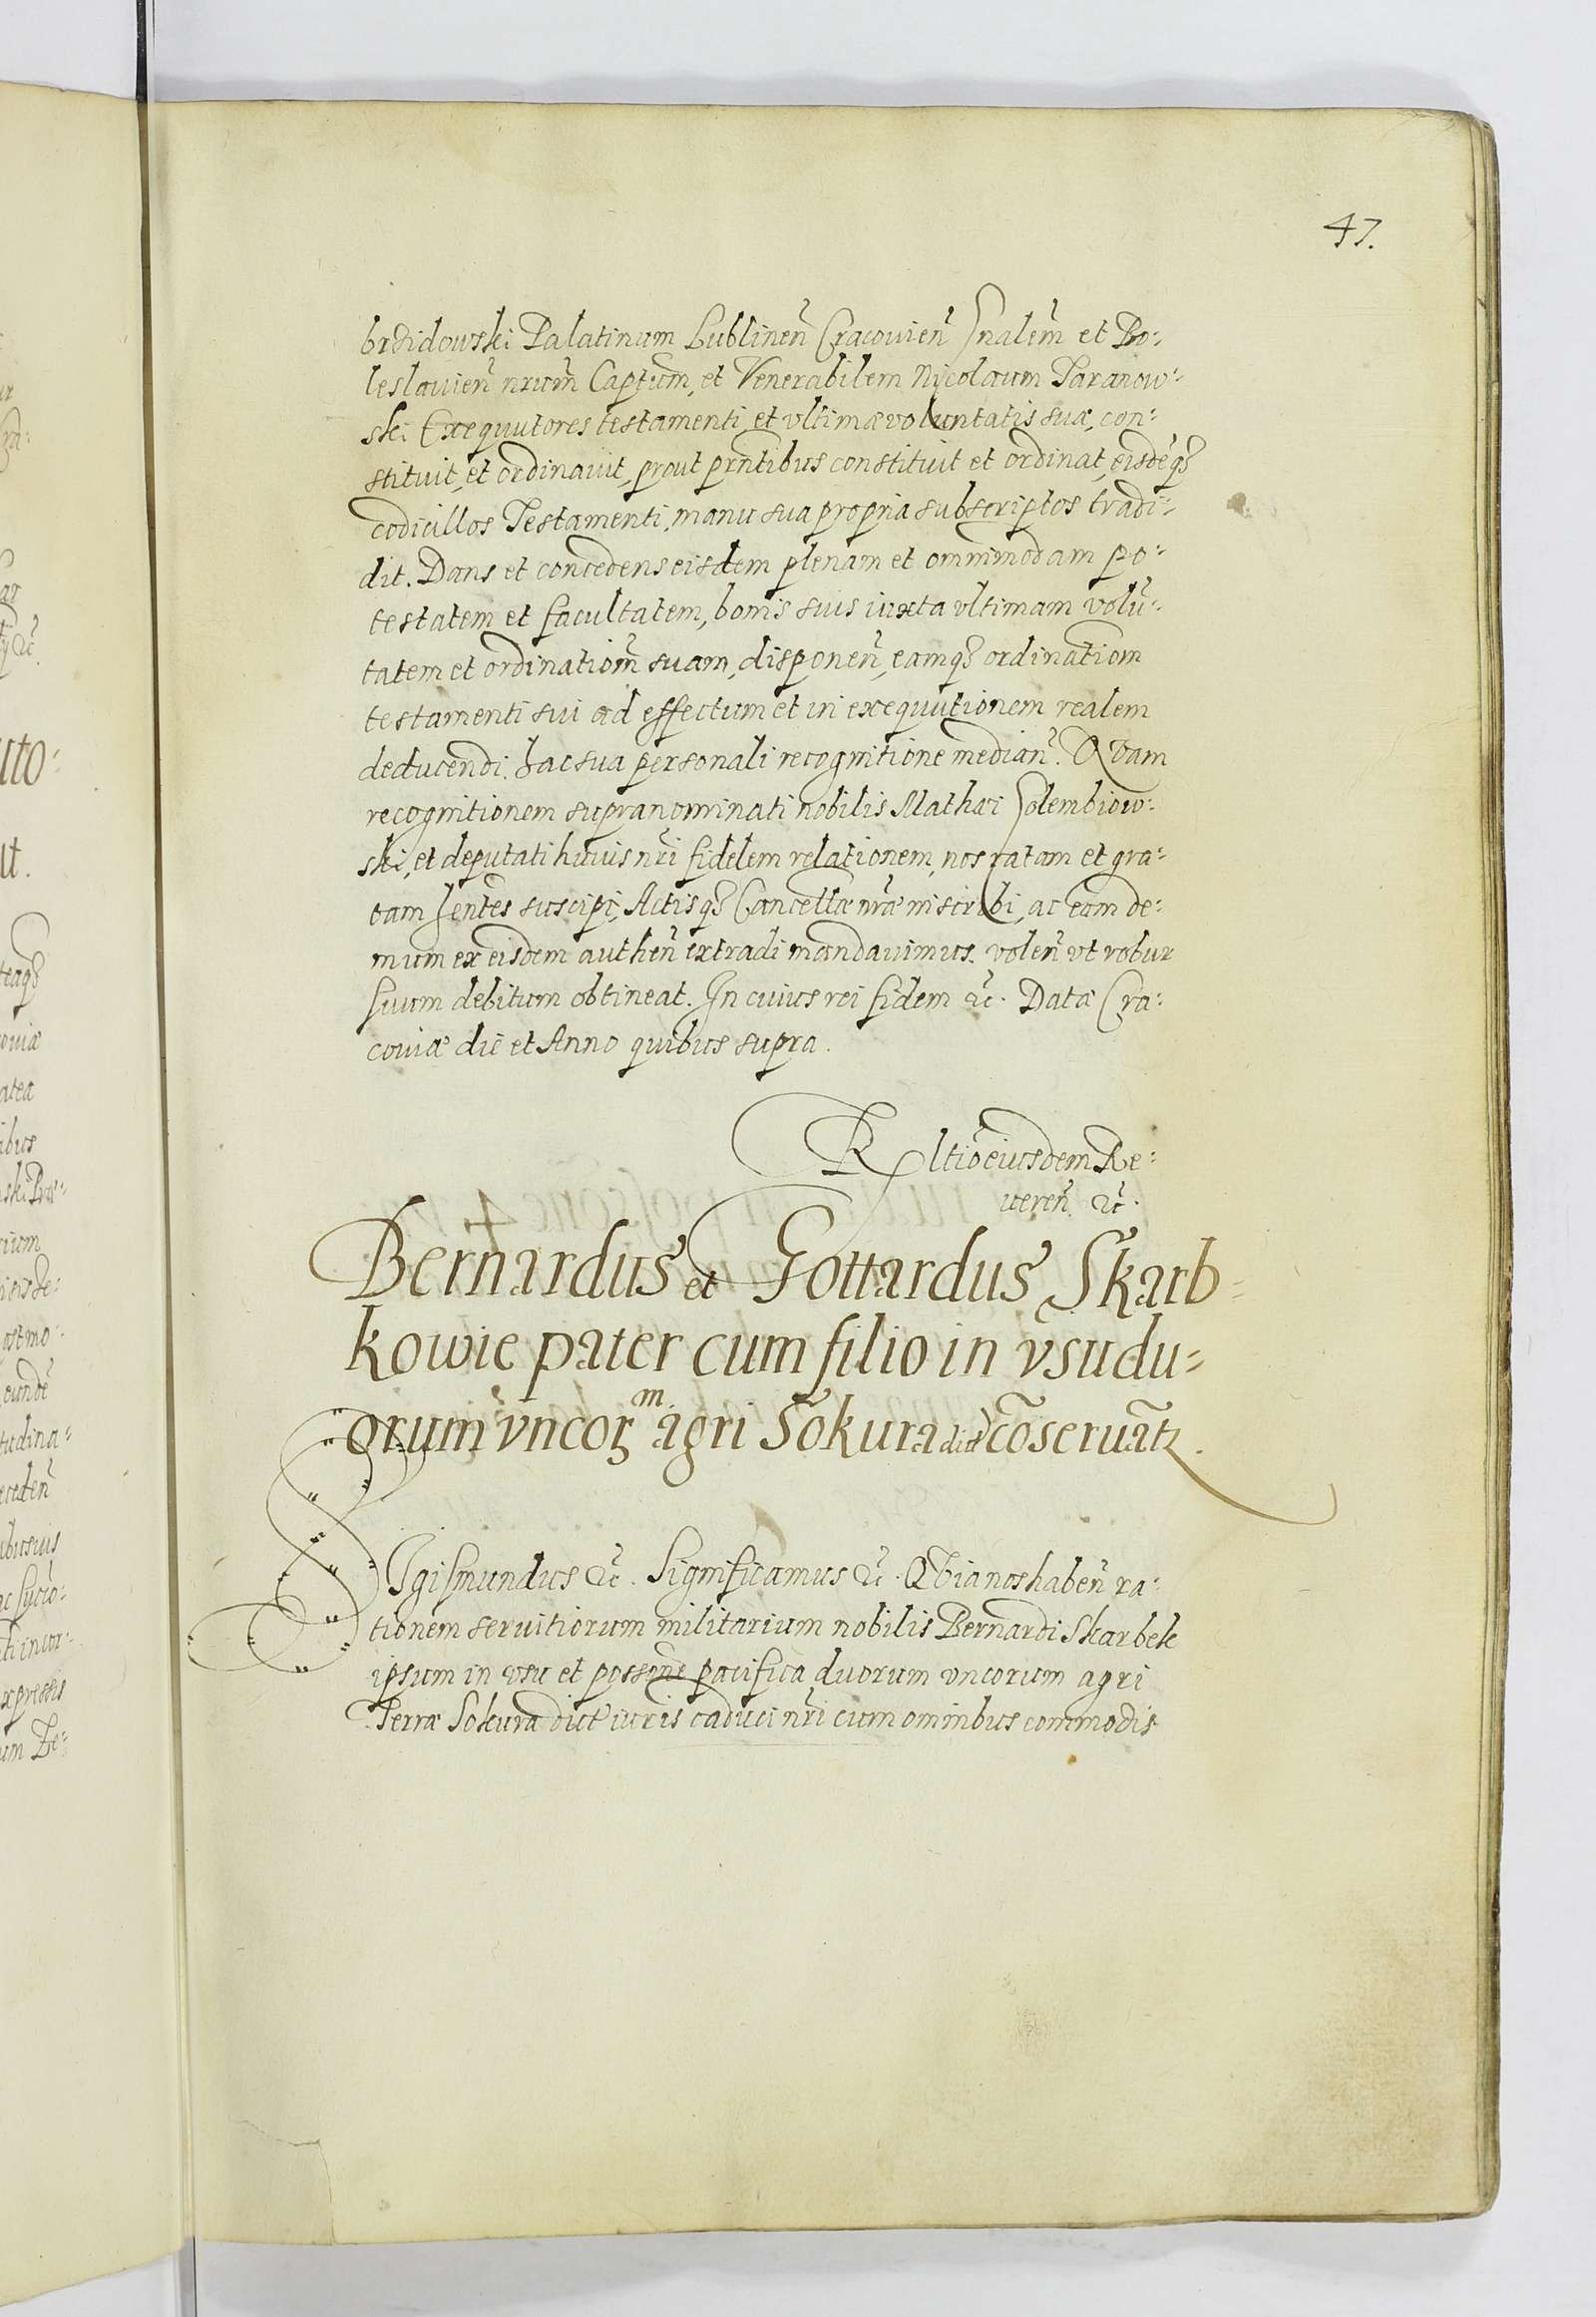 47.
brzidowski Palatinum Lublinen̄ Cracouien̄ Gnalem̄ et Bo:
leslauien̄ nrum̄ Captum̄, et Venerabilem Nicolaum Taranow:
ski Exequutores testamenti et vltimæ voluntatis suæ, con:
stituit, et ordinauit, prout prñtibus constituit et ordinat, eisdē qȝ
codicillos Testamenti, manu sua propria subscriptos tradi:
dit. Dans et concedens eisdem plenam et omnimodam po:
testatem et facultatem, bonis suis iuxta vltimam volū:
tatem et ordinatiom̄ suam, disponen̄, eamqȝ ordinatiom
testamenti sui ad effectum et in exequutionem realem
deducendi. hac sua personali recognitione median̄. Quam
recognitionem supranominati nobilis Mathæi Golembiow:
ski, et deputati huius nr̄i fidelem relationem, nos ratam et gra:
tam hentēs suscipi, Actisqȝ Cancellæ nr̄æ inscribi, ac eam de:
mum ex eisdem authen̄ extradi mandauimus. volen̄ vt robur
suum debitum obtineat. In cuius rei fidem &c̄. Datæ Cra:
couiæ die et Anno quibus supra.
Rltio eiusdem Re:
ueren̄ &c̄.
Bernardus et Gottardus Skarb=
kowie pater cum filio in vsu du=
orum vncoꝝ m agri Sokura dict cōseruātꝝ.
SIgismundus &c̄. Significamus &c̄. Quia nos haben̄ ra:
tionem seruitiorum militarium nobilis Bernardi Skarbek
ipsum in vsu et possone pacifica duorum vncorum agri
Terræ Sokura dict iuris caduci nr̄i cum omnibus commodis